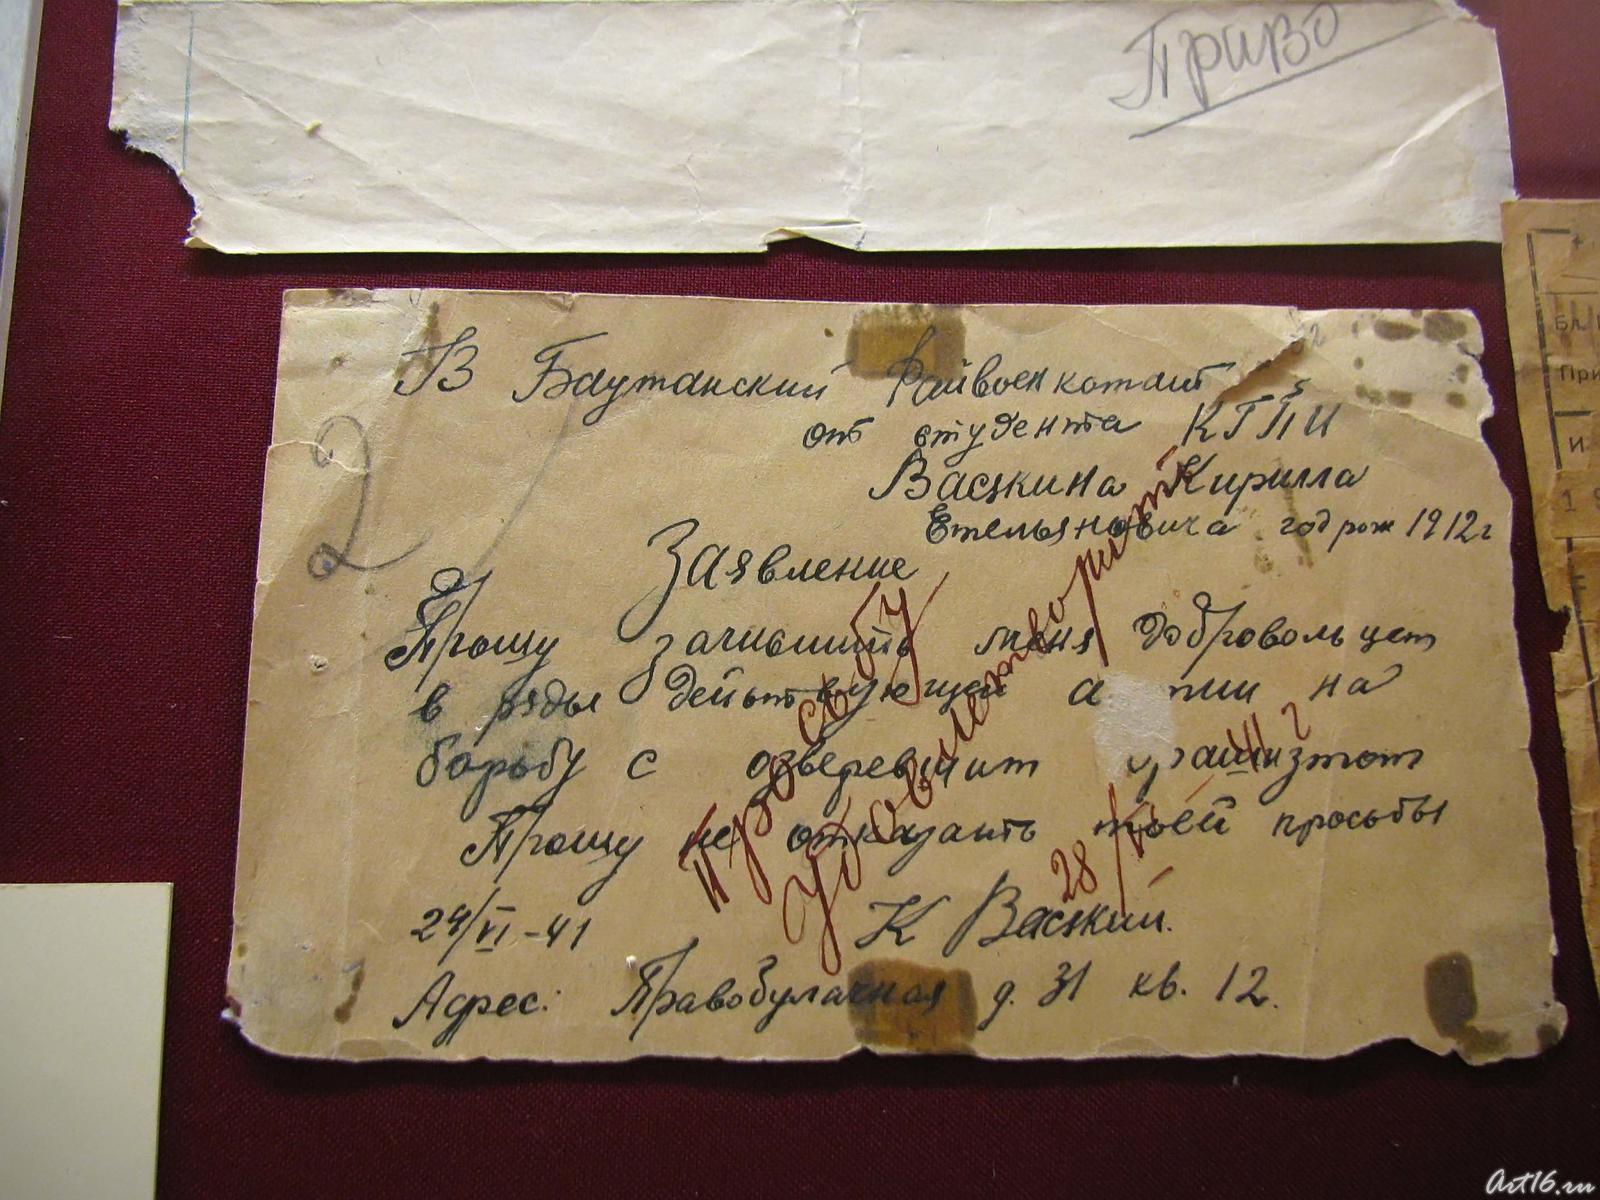 Приво
2
В Баутанский Райвоенкомат
от студента КГПИ
Васякина Кирилла
Емельяновича год рож 1912г
Заявление
Прошу зачислить меня добровольцем
в ряды действующей а мии на
борьбу с озверевшим фашизмом
Прошу не отказать моей просьбы
24/VI-41 К Васякин.
Адрес: Правобулачная д. 31 кв. 12.
Просьбу
удовлетворить
28/
41 г
Бл
При
И
1
Art16.ru